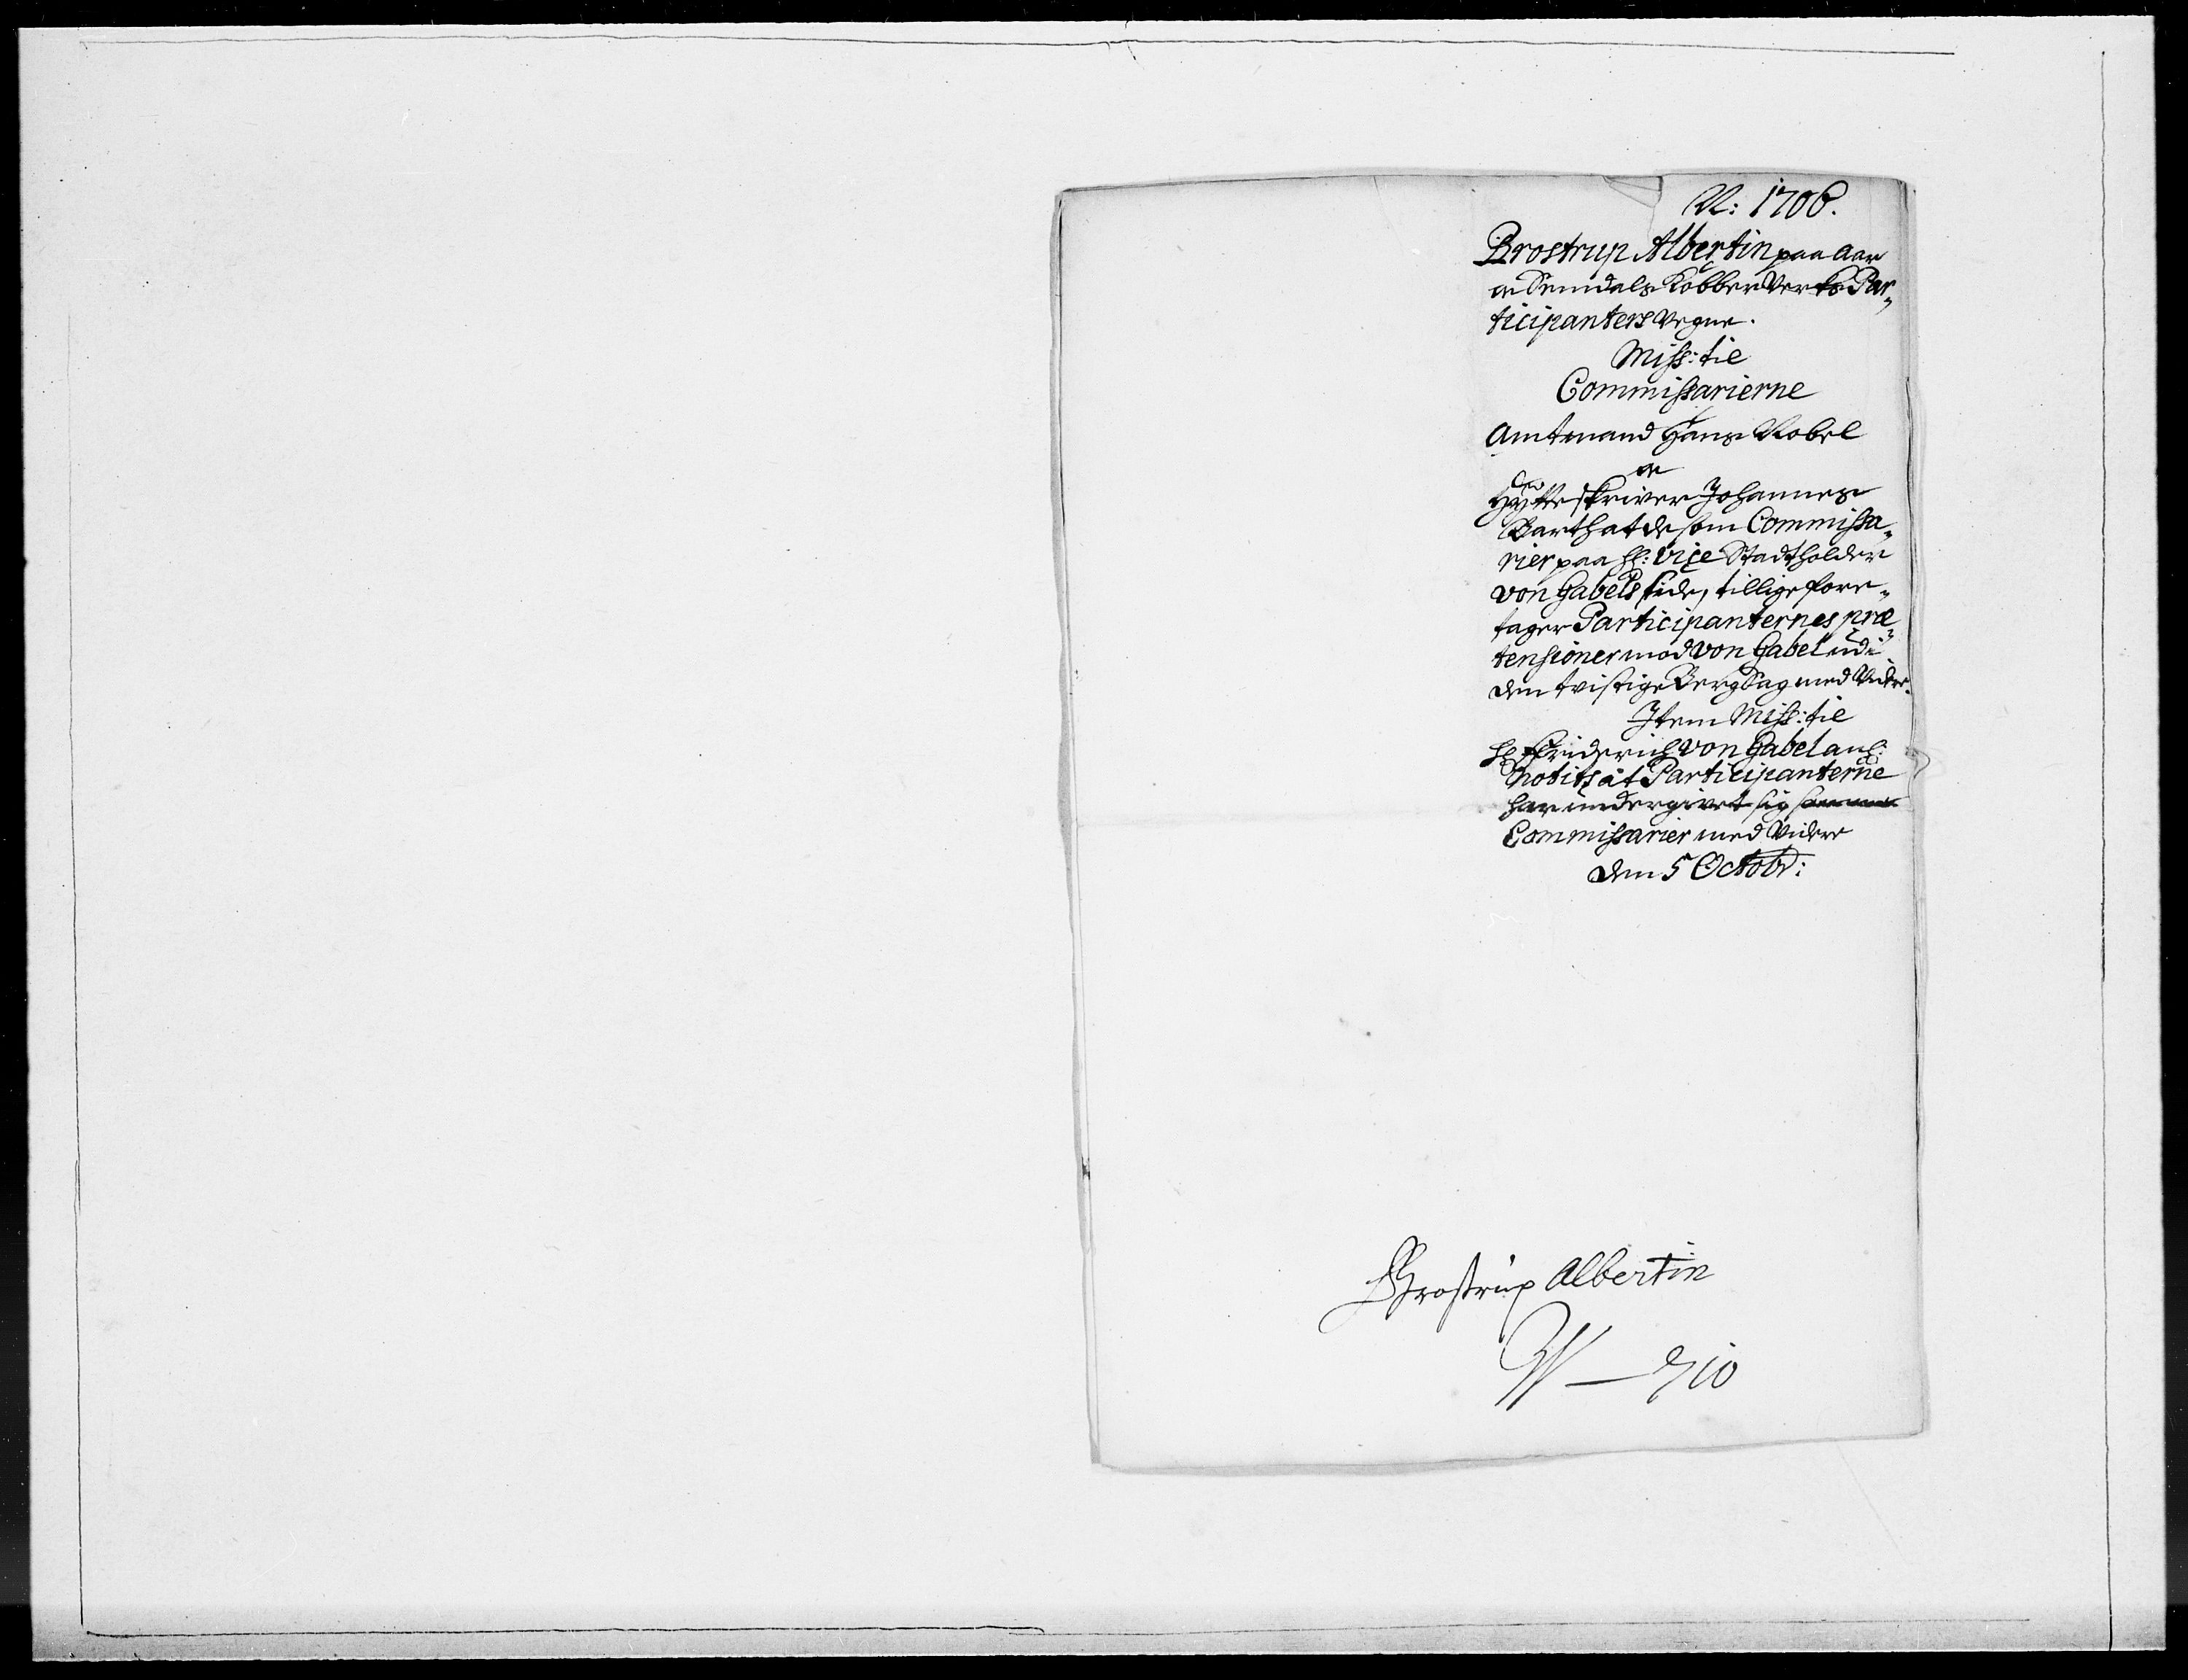 N: 1706.
Brostrup Albertin paa Aar
oe Semdals Kobber Verks Par„
ticipanters Vegne.
Miss: til
Commissarierne
Amtmand Hans Nobel
oe
Hytteskriver Johannes
Barth at de som Commissa„
rier paa Hr: Vice Stadtholder
von Gabels side, tillige fore„
tager Participanternes præ„
tensioner mod von Gabel udi
den tvistige Bergsag med Videre.
Item Miss: til
Hr Friderich von Gabel anl:
Notits at Participanterne
har undergivet sig samme
Commissarier med Videre
den 5 Octobr:
Brostrup Albertin
N — 710